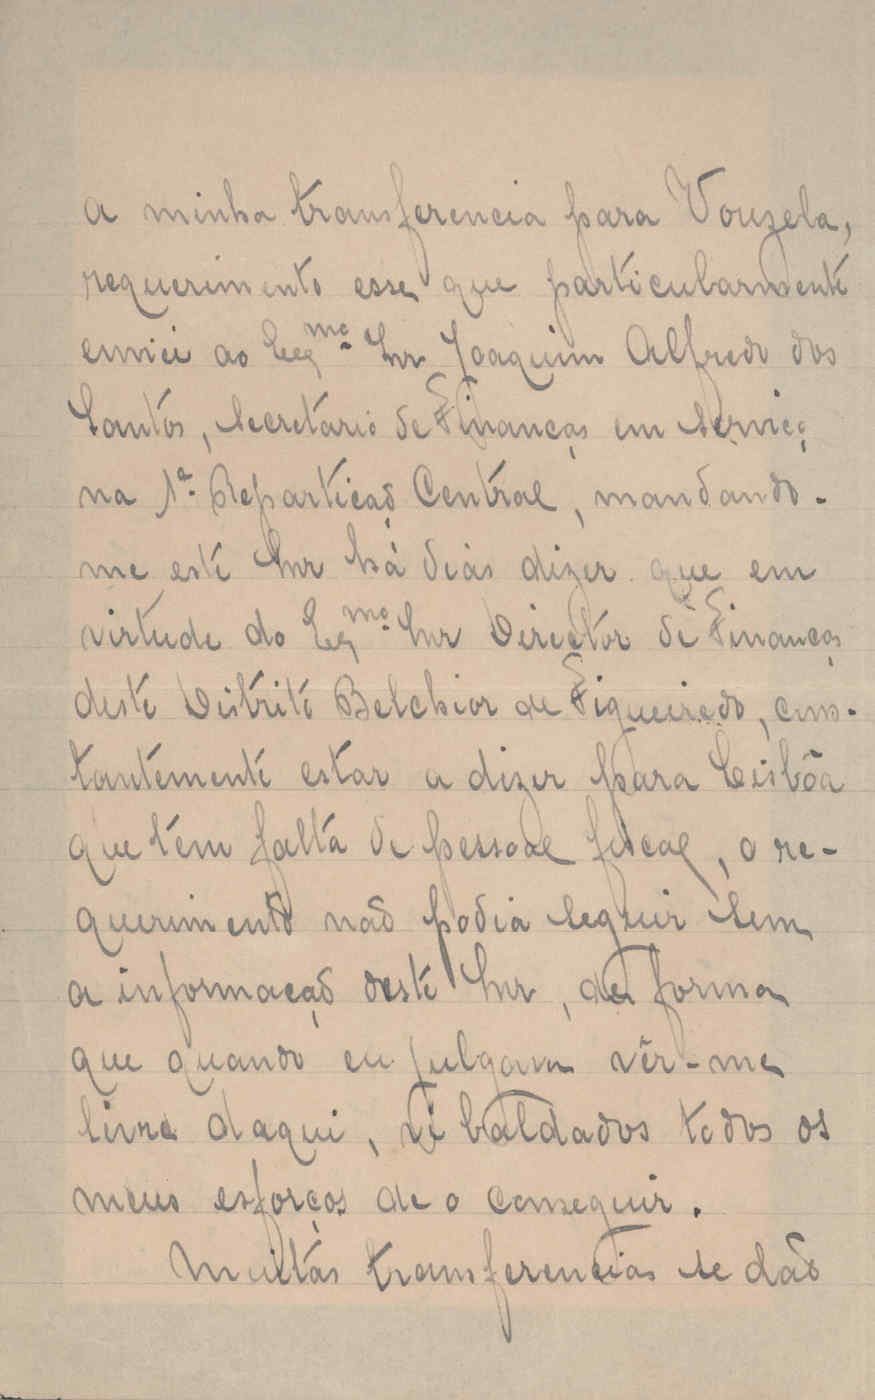 a minha transferencia para Vouzela,
requerimento esse que particularmente
enviei ao Exmº Snr Joaquim Alfredo dos
Santos, Secretario de Finanças em serviço
na 1ª Repartição Central, mandando-
me este Snr há dias dizer que em
virtude do Exmº Snr Director de Finanças
deste Distrito Belchior de Figueiredo, cons-
tantemente estar a dizer para Lisbôa
que tem falta de pessoal fiscal, o re-
querimento não podia seguir sem
a informação deste Snr, de forma
que quando eu julgava vêr-me
livre daqui, vi baldados todos os
meus esforços de o conseguir.
Muitas transferencias se dão